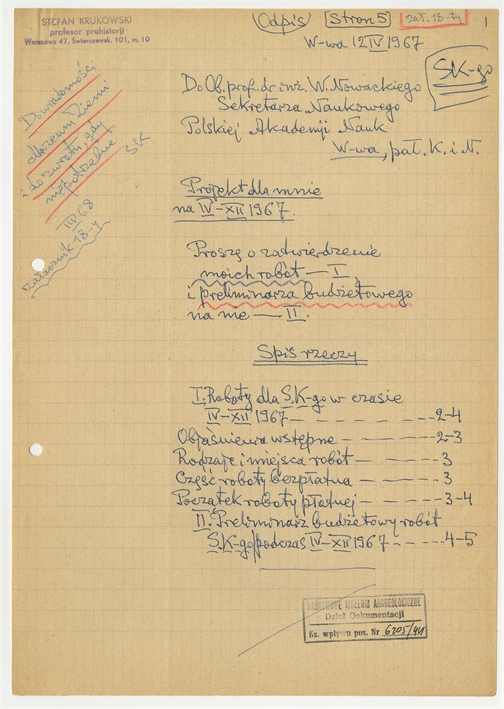 STEFAN KRUKOWSKI
profesor prehistorji
Warszawa 47, Świerczewsk. 101, m. 10
Odpis
Stron 5
zał. 18-ty
1
W-wa 12 IV 1967
S.K-go
Do Ob. prof. dr inż. W. Nowackiego
Sekretarza Naukowego
Polskiej Akademji Nauk
W-wa, pał. K. i N.
Do wiadomości
Muzeum Ziemi
i do zwrotu, gdy
niepotrzebne
SK
III 68
załącznik 18-y
Projekt dla mnie
na IV–XII 1967.
Proszę o zatwierdzenie
moich robót — I,
i preliminarza budżetowego
na nie — II.
Spis rzeczy
I. Roboty dla S.K-go w czasie
IV–XII 1967 — — — — — 2-4
Objaśnienia wstępne — — — — — 2-3
Rodzaje i miejsca robót — — — — 3
Część roboty bezpłatna — — — — 3
Początek roboty płatnej — — — — 3-4
II. Preliminarz budżetowy robót
S.K-go podczas IV–XII 1967 — — — — 4-5
PAŃSTWOWE MUZEUM ARCHEOLOGICZNE
Dział Dokumentacji
Ks. wpływu poz. Nr 6205/44